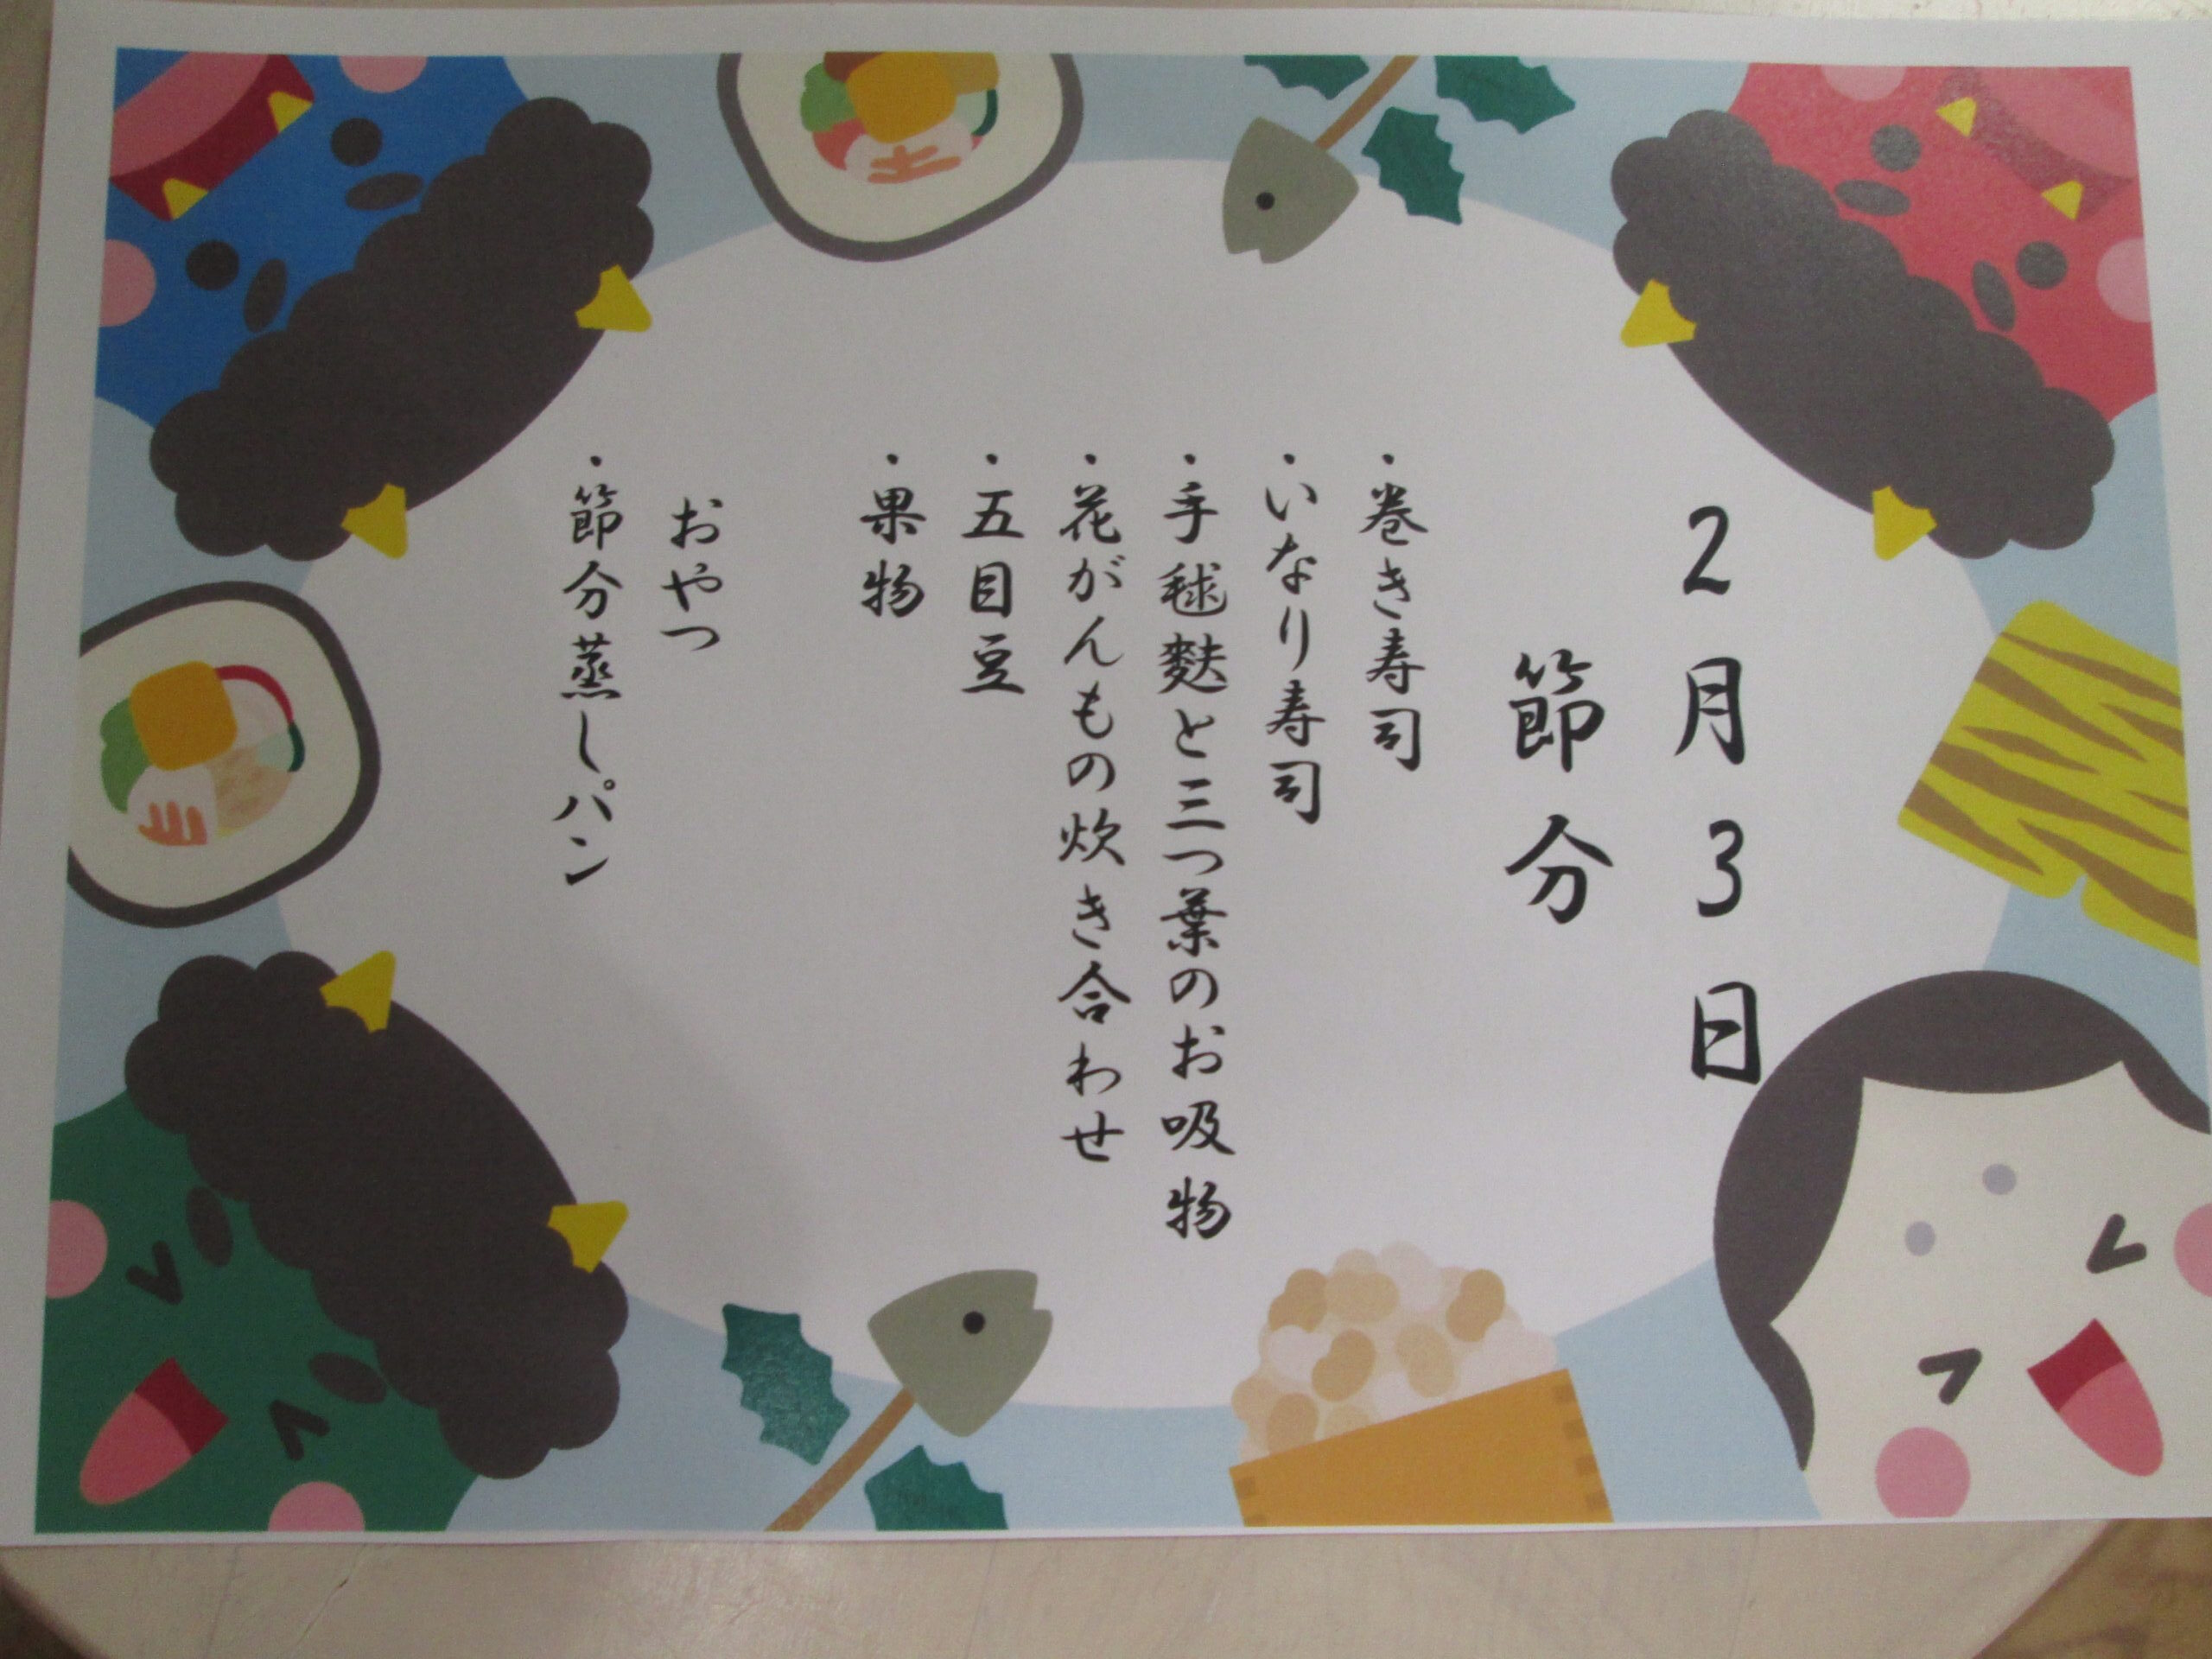 2月3日
節分
・巻き寿司
・いなり寿司
・手毬麩と三つ葉のお吸物
・花がんもの炊き合わせ
・五目豆
・果物
おやつ
・節分蒸しパン